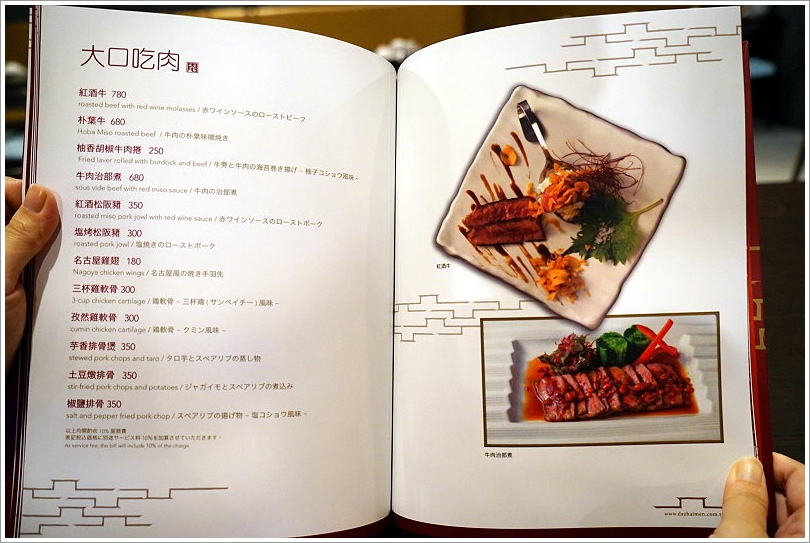 大口吃肉
紅酒牛 780
roasted beef with red wine molasses / 赤ワインソースのローストビーフ
朴葉牛 680
Hoba Miso roasted beef / 牛肉の朴葉味噌焼き
柚香胡椒牛肉捲 250
Fried laver rolled with burdock and beef / 牛蒡と牛肉の海苔巻き揚げ ~ 柚子コショウ風味 ~
牛肉治部煮 680
sous vide beef with red miso sauce / 牛肉の治部煮
紅酒松阪豬 350
roasted miso pork jowl with red wine sauce / 赤ワインソースのローストポーク
塩烤松阪豬 300
roasted pork jowl / 塩焼きのローストポーク
名古屋雞翅 180
Nagoya chicken wings / 名古屋風の焼き手羽先
三杯雞軟骨 300
3-cup chicken cartilage / 鶏軟骨 ~ 三杯鶏 ( サンベイチー ) 風味 ~
孜然雞軟骨 300
cumin chicken cartilage / 鶏軟骨 ~ クミン風味 ~
芋香排骨煲 350
stewed pork chops and taro / タロ芋とスペアリブの蒸し物
土豆燉排骨 350
stir-fried pork chops and potatoes / ジャガイモとスペアリブの煮込み
椒鹽排骨 350
salt and pepper fried pork chop / スペアリブの揚げ物 ~ 塩コショウ風味 ~
以上均需酌收 10% 服務費
表記税込価格に別途サービス料 10%を加算させていただきます。
As service fee, the bill will include 10% of the charge.
紅酒牛
牛肉治部煮
www.dazhaimen.com.t